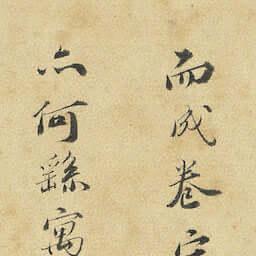 而成卷
亦何繇寓